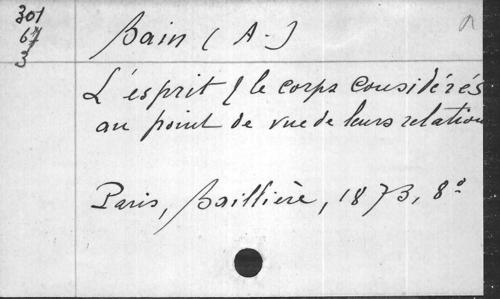 301
67
3
Bain (A-)
a
L'esprit & le corps considérés
au point de vue de leurs relation
Paris, Baillière, 1873, 8°